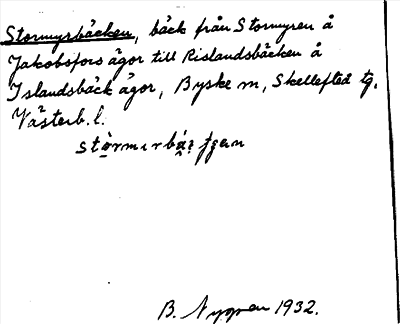 Stormyrbäcken, bäck från Stormyren å
Jakobsfors ägor till Rislandsbäcken å
Islandsbäck ägor, Byske sn, Skellefteå tg.
Västerb. l.
B. Nygren 1932.